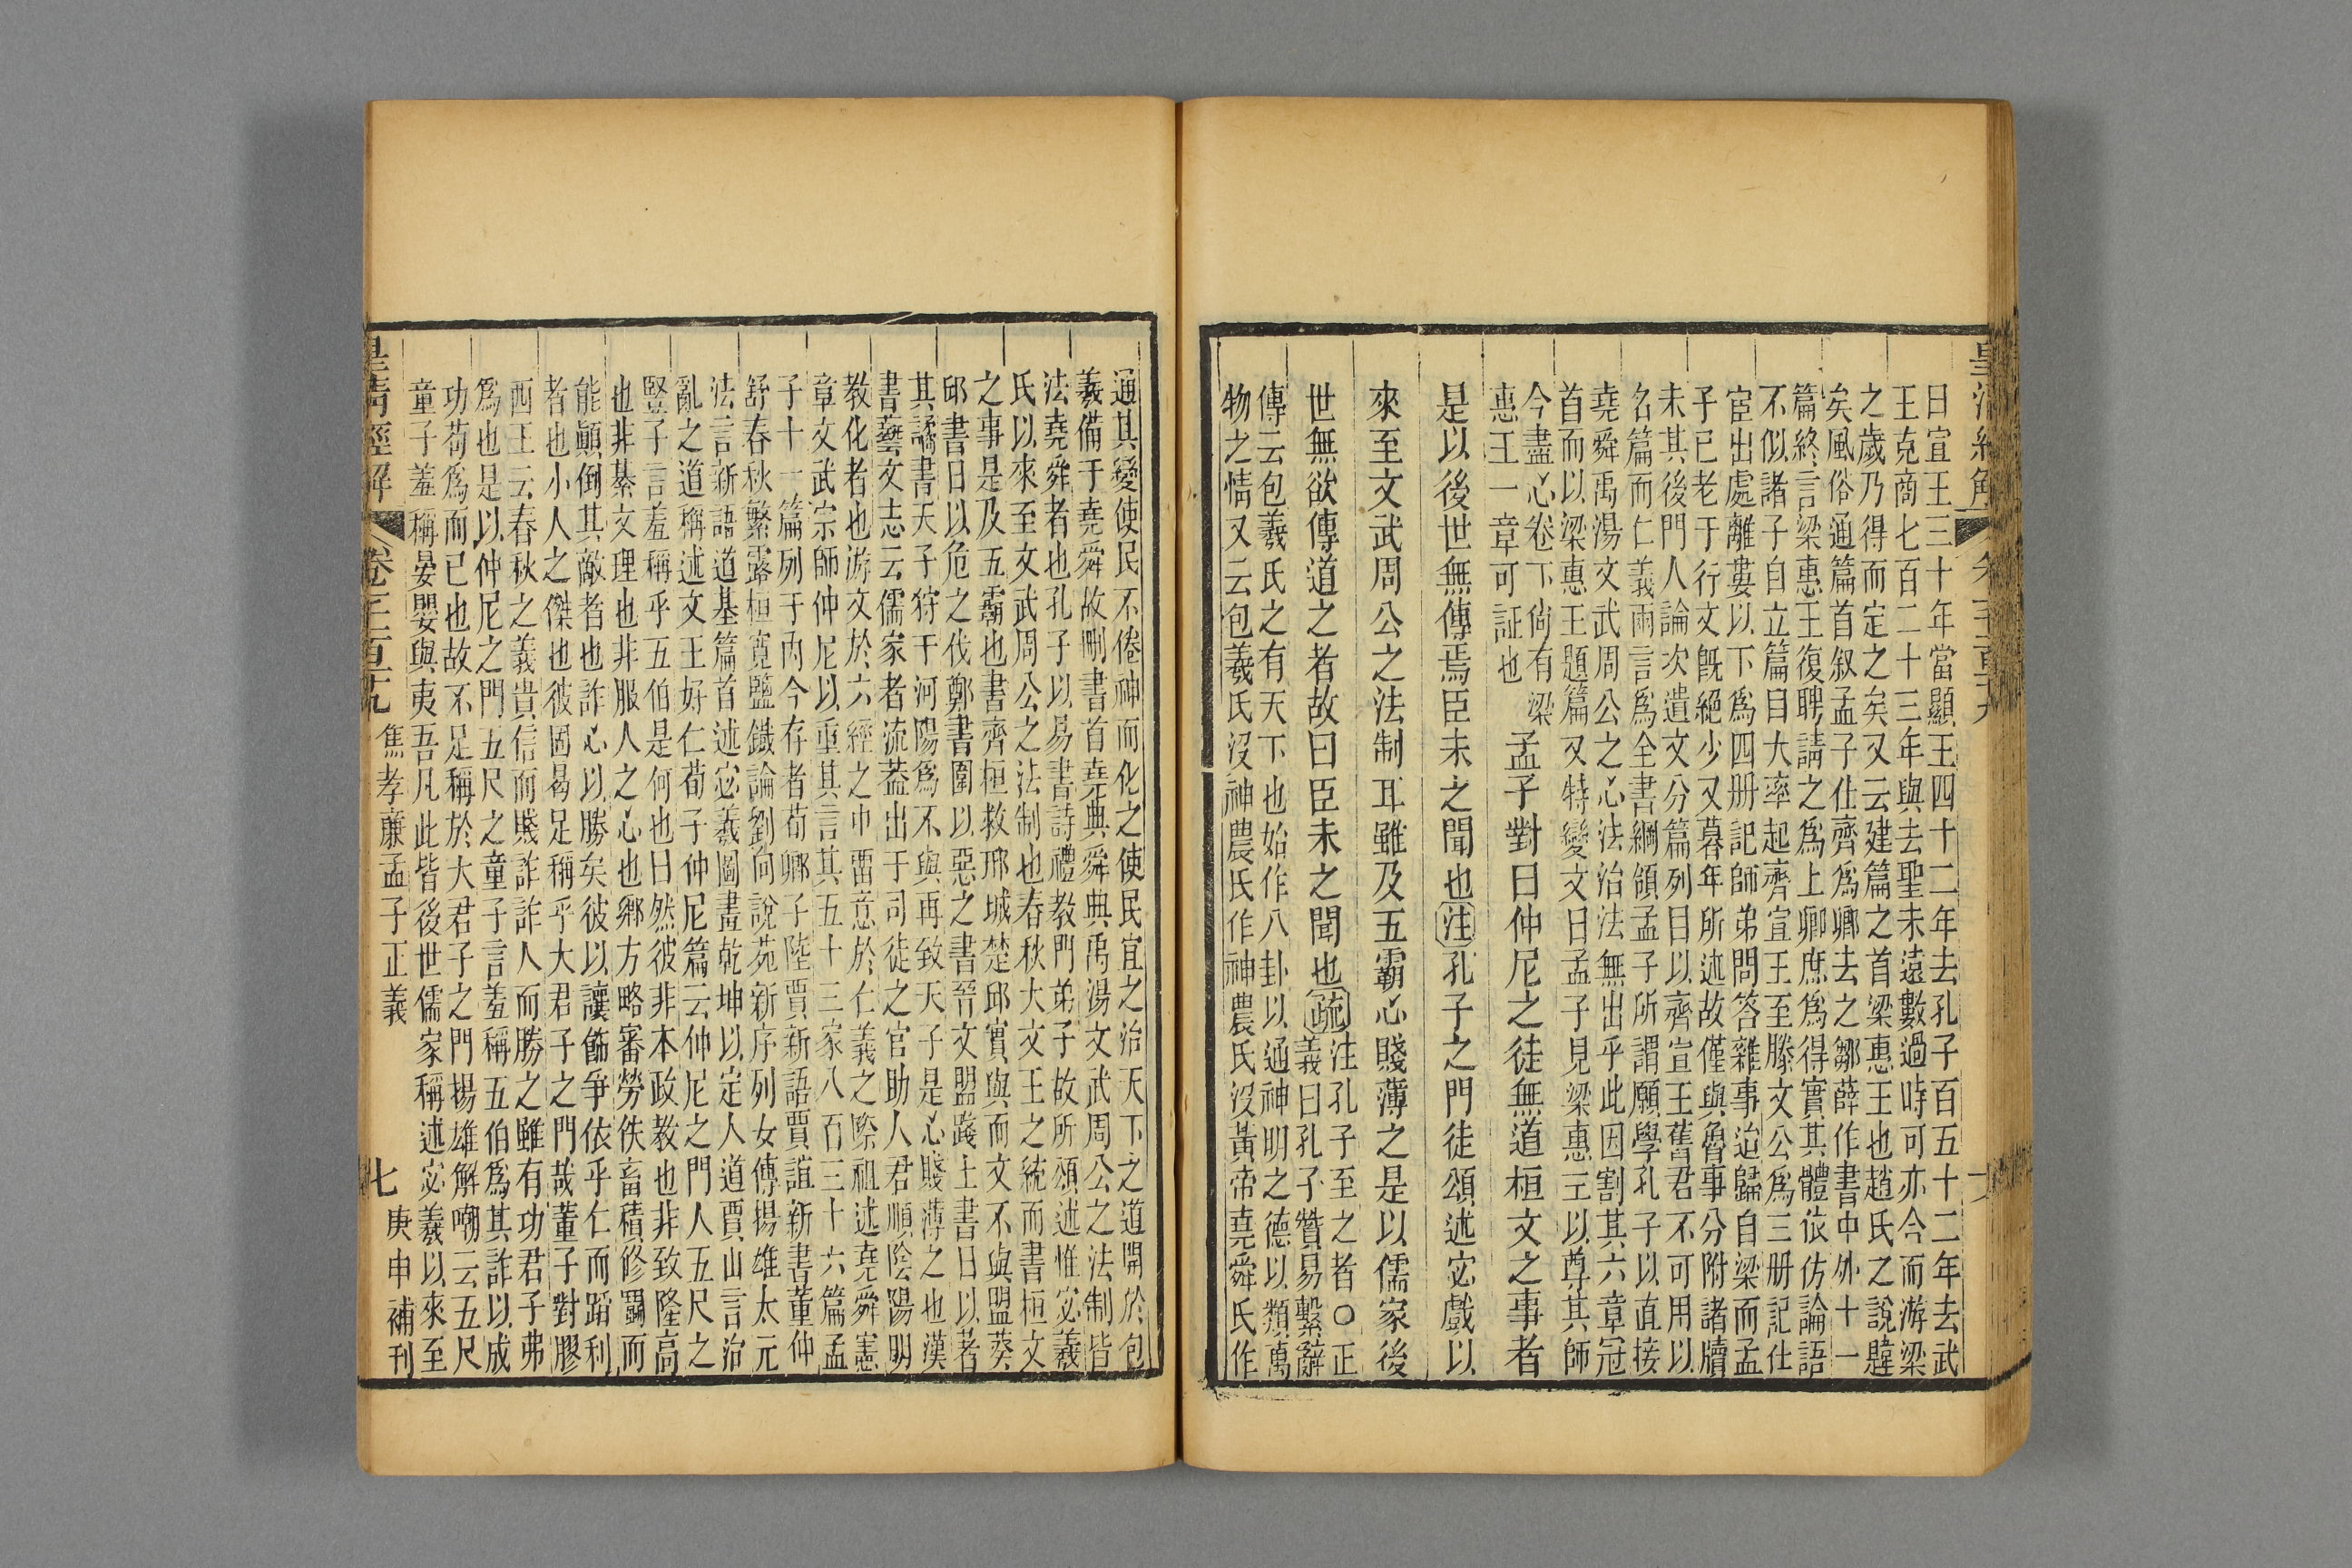 曰宣王三十年當顯王四十二年去孔子百五十二年去武
王克商七百二十三年與去聖未遠數過時可亦今而游梁
之歲乃得而定之矣又云建篇之首梁惠王也趙氏之說韙
矣風俗通篇首叙孟子仕齊爲卿去之鄒薛作書中外十一
篇終言梁惠王復聘請之爲上卿庶爲得實其體依仿論語
不似諸子自立篇目大率起齊宣王至滕文公爲三册記仕
宦出處離婁以下爲四册記師弟問答雜事迨歸自梁而孟
子已老于行文旣絕少又暮年所述故僅與魯事分附諸牘
末其後門人論次遺文分篇列目以齊宣王舊君不可用以
名篇而仁義兩言爲全書綱領孟子所謂願學孔子以直接
堯舜禹湯文武周公之心法治法無出乎此因割其六章冠
首而以梁惠王題篇又特變文曰孟子見梁惠王以尊其師
今盡心卷下尙有梁
惠王一章可証也
孟子對曰仲尼之徒無道桓文之事者
是以後世無傳焉臣未之聞也注孔子之門徒頌述宓戲以
來至文武周公之法制耳雖及五霸心賤薄之是以儒家後
世無欲傳道之者故曰臣未之聞也疏
注孔子至之者○正
義曰孔子贊易繫辭
傳云包羲氏之有天下也始作八卦以通神明之德以類萬
物之情又云包羲氏沒神農氏作神農氏沒黃帝堯舜氏作
通其變使民不倦神而化之使民宜之治天下之道開於包
羲備于堯舜故刪書首堯典舜典禹湯文武周公之法制皆
法堯舜者也孔子以易書詩禮教門弟子故所頌述惟宓羲
氏以來至文武周公之法制也春秋大文王之統而書桓文
之事是及五霸也書齊桓救邢城楚邱實與而文不與盟葵
邱書日以危之伐鄭書圍以惡之書晉文盟踐土書日以著
其譎書天子狩于河陽爲不與再致天子是心賤薄之也漢
書藝文志云儒家者流蓋出于司徒之官助人君順陰陽明
教化者也游文於六經之中畱意於仁義之際祖述堯舜憲
章文武宗師仲尼以重其言其五十三家八百三十六篇孟
子十一篇列于內今存者荀卿子陸賈新語賈誼新書董仲
舒春秋繁露桓寬鹽鐵論劉向說苑新序列女傳揚雄太元
法言新語道基篇首述宓羲圖畫乾坤以定人道賈山言治
亂之道稱述文王好仁荀子仲尼篇云仲尼之門人五尺之
豎子言羞稱乎五伯是何也曰然彼非本政教也非致隆高
也非綦文理也非服人之心也鄉方略審勞佚畜積修鬬而
能顚倒其敵者也詐心以勝矣彼以讓飾爭依乎仁而蹈利
者也小人之傑也彼固曷足稱乎大君子之門哉董子對膠
西王云春秋之義貴信而賤詐詐人而勝之雖有功君子弗
爲也是以仲尼之門五尺之童子言羞稱五伯爲其詐以成
功苟爲而已也故不足稱於大君子之門揚雄解嘲云五尺
童子羞稱晏嬰與夷吾凡此皆後世儒家稱述宓羲以來至
皇清經解 卷千一百十九 焦孝廉孟子正義 七 庚申補刊